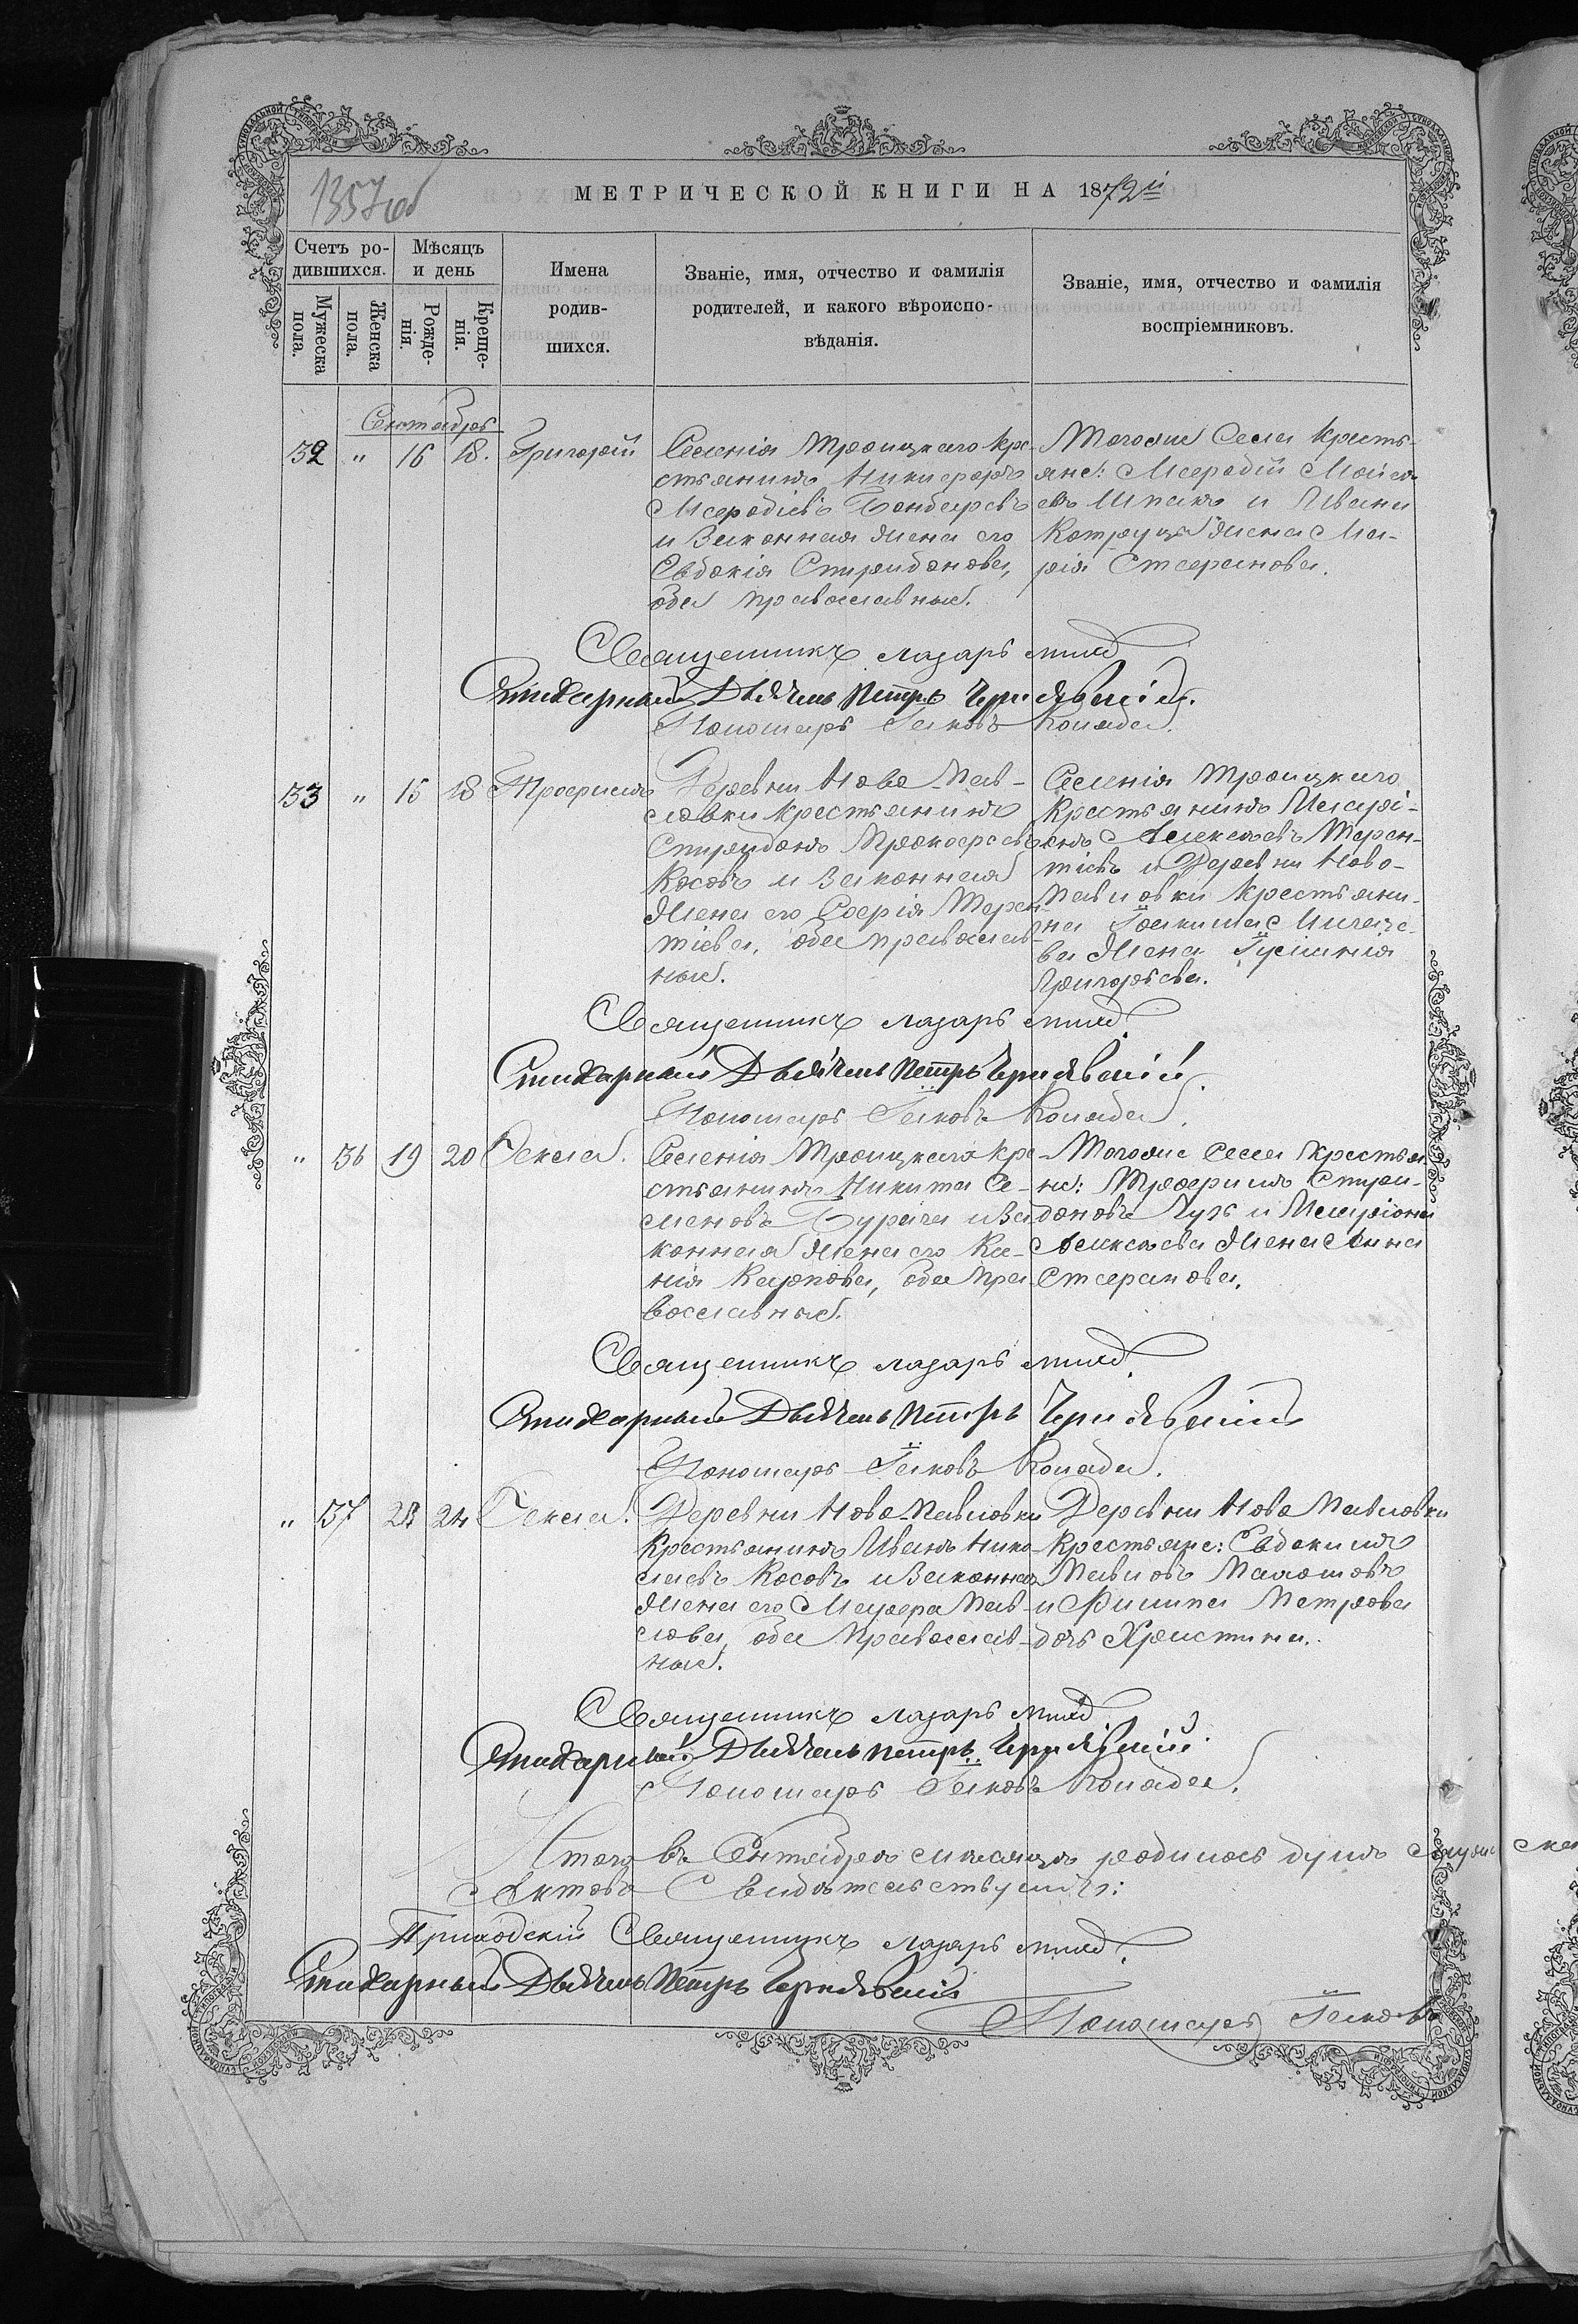 1357об
МЕТРИЧЕСКОЙ КНИГИ НА 1872й
Счетъ ро-
дившихся.
Мужеска
пола.
Женска
пола.
Мѣсяцъ
и день
Рожде-
нія.
Креще-
нія.
Имена
родив-
шихся.
Званіе, имя, отчество и фамилія
родителей, и какого вѣроиспо-
вѣданія.
Званіе, имя, отчество и фамилія
воспріемниковъ.
Сентябрь
32 " 16 18. Григорій
Селенія Троицкаго Кре-
стьянинъ Никифоръ
Мефодіевъ Бондаревъ
и Законная Жена его
Евдокія Спиридонова,
оба православные.
Тогоже Села Кресть-
яне: Мефодій Моисе-
евъ Шпакъ и Ивана
Жена Ма-
рія Стефанова.
Священникъ Лазарь
Стихарный Дьячекъ Петръ Чернявскій.
Пономарь Іаковъ Коляда.
33 " 15 18 Трофимъ
Деревни Ново-Пав-
ловки Крестьянинъ
Спиридонъ Прокофьевъ
Косовъ и Законная
Жена его Софія Терен-
тіева, оба православ-
ные.
Селенія Троицкаго
Крестьянинъ Иларі-
онъ Алексѣевъ Терен-
тіевъ и Деревни Ново-
Павловки Крестьяни-
на Іоакима
ва Жена Гуліанія
Григорьева.
Священникъ Лазарь
Стихарный Дьячекъ Петръ Чернявскій.
Пономарь Іаковъ Коляда.
" 36 19 20 Өекла.
Селенія Троицкаго Кре-
стьянинъ Никита Се-
меновъ Бурача и За-
конная Жена его Ксе-
нія Карпова, оба пра-
вославные.
Тогоже Села Крестья-
не: Трофимъ Спири-
доновъ и Иларіона
Алексѣева Жена Анна
Стефанова.
Священникъ Лазарь
Стихарный Дьячекъ Петръ Чернявскій
Пономарь Іаковъ Коляда.
" 37 23 24 Өекла.
Деревни Ново-Павловки
Крестьянинъ Иванъ Нико-
лаевъ Косовъ и Законная
Жена его Марфа Пав-
лова, оба Православ-
ные.
Деревни Ново Павловки
Крестьяне: Евдокимъ
Павловъ
и Филипа Петрова
дочь Христина.
Священникъ Лазарь
Стихарный Дьячекъ Петръ Чернявскій.
Пономарь Іаковъ Коляда.
Итого въ Сентябрѣ мѣсяцѣ родилось душъ мужска
Свидѣтельствуемъ:
Приходскій Священникъ Лазарь
Стихарный Дьячекъ Петръ Чернявскій
Пономарь Іаковъ